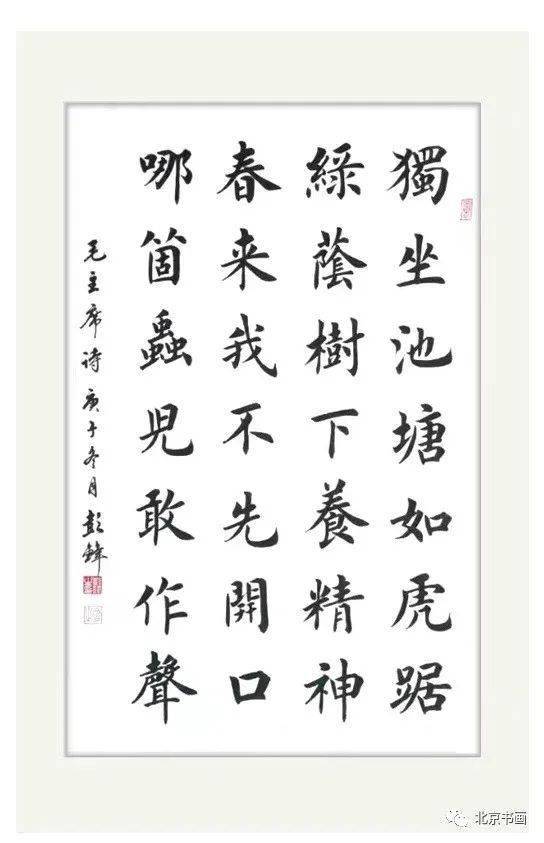 獨坐池塘如虎踞
綠蔭樹下養精神
春来我不先開口
哪箇蟲児敢作聲
毛主席诗 庚子冬月 彭鋒
北京书画